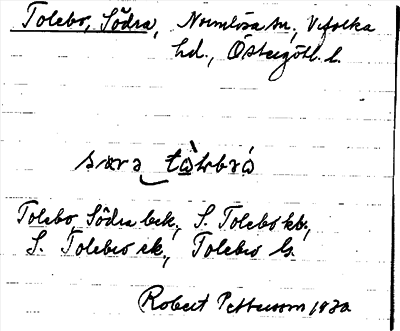 Tolebo, Södra, Normlösa sn, Vifolka
hd., Östergötl. l.
særə
Tolebo Södra bek, S. Tolebo kb,
S. Tolebo ek, Tolebo
Robert Pettersson 1930